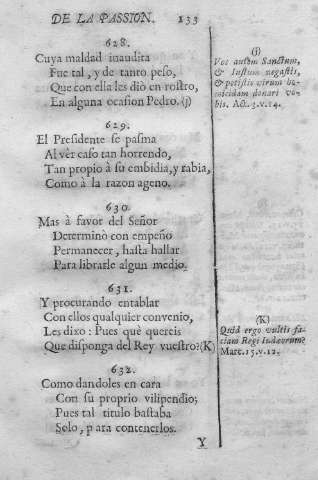 DE LA PASSION. 133
628.
Cuya maldad inaudita
Fue tal, y de tanto peso,
Que con ella les diò en rostro,
En alguna ocasion Pedro.(j)
629.
El Presidente se pasma
Al vèr caso tan horrendo,
Tan propio à su embidia, y rabia,
Como à la razon ageno.
630.
Mas à favor del Señor
Determinò con empeño
Permanecer, hasta hallar
Para librarle algun medio.
631.
Y procurando entablar
Con ellos qualquier convenio,
Les dixo: Pues què quereis
Que disponga del Rey vuestro?(K)
632.
Como dandoles en cara
Con su proprio vilipendio;
Pues tal titulo bastaba
Solo, para contenerlos.
Y
(j)
Vos autem Sanctum,
& Iustum negastis,
& petistis virum ho-
micidam donari vo-
bis. Act. 3. v. 14.
(K)
Quid ergo vultis fa-
ciam Regi Iudæorum?
Marc. 15. v. 12.